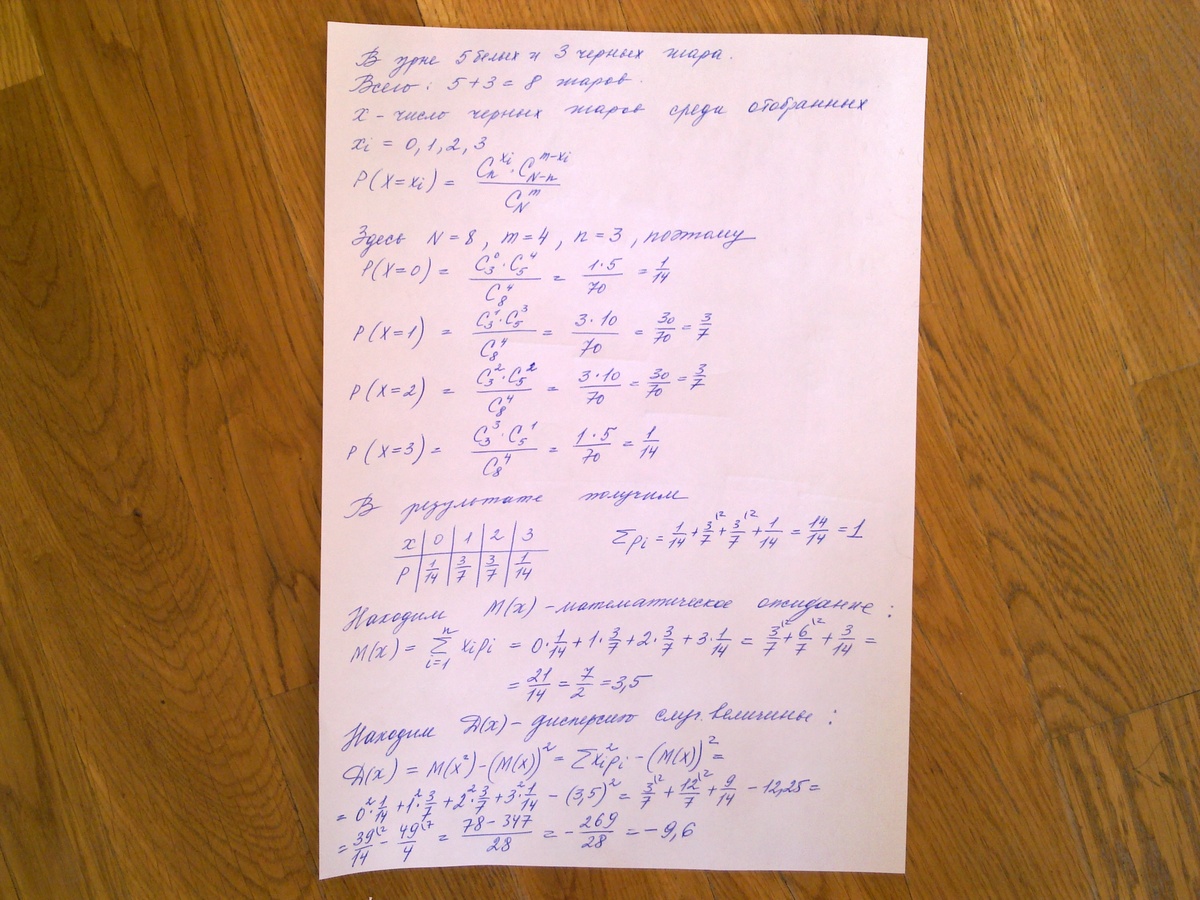 В урне 5 белых и 3 черных шара.
Всего: 5+3 = 8 шаров.
X - число черных шаров среди отобранных
xi = 0, 1, 2, 3
P(X=xi) = C_n^{xi} · C_{N-n}^{m-xi} / C_N^m
Здесь N=8, m=4, n=3, поэтому
P(X=0) = C_3^0 · C_5^4 / C_8^4 = 1·5/70 = 1/14
P(X=1) = C_3^1 · C_5^3 / C_8^4 = 3·10/70 = 30/70 = 3/7
P(X=2) = C_3^2 · C_5^2 / C_8^4 = 3·10/70 = 30/70 = 3/7
P(X=3) = C_3^3 · C_5^1 / C_8^4 = 1·5/70 = 1/14
В результате получим
X | 0 | 1 | 2 | 3
P | 1/14 | 3/7 | 3/7 | 1/14
Σpi = 1/14 + 3/7^{12} + 3/7^{12} + 1/14 = 14/14 = 1
Находим M(x) - математическое ожидание:
M(x) = Σ_{i=1}^n xipi = 0·1/14 + 1·3/7 + 2·3/7 + 3·1/14 = 3/7^{12} + 6/7^{12} + 3/14 =
= 21/14 = 7/2 = 3,5
Находим D(x) - дисперсию случ. величины:
D(x) = M(x²) - (M(x))² = Σxi²pi - (M(x))² =
= 0²·1/14 + 1²·3/7 + 2²·3/7 + 3²·1/14 - (3,5)² = 3/7^{12} + 12/7^{12} + 9/14 - 12,25 =
= 39/14^{12} - 49/4^{17} = 78-347/28 = - 269/28 = -9,6